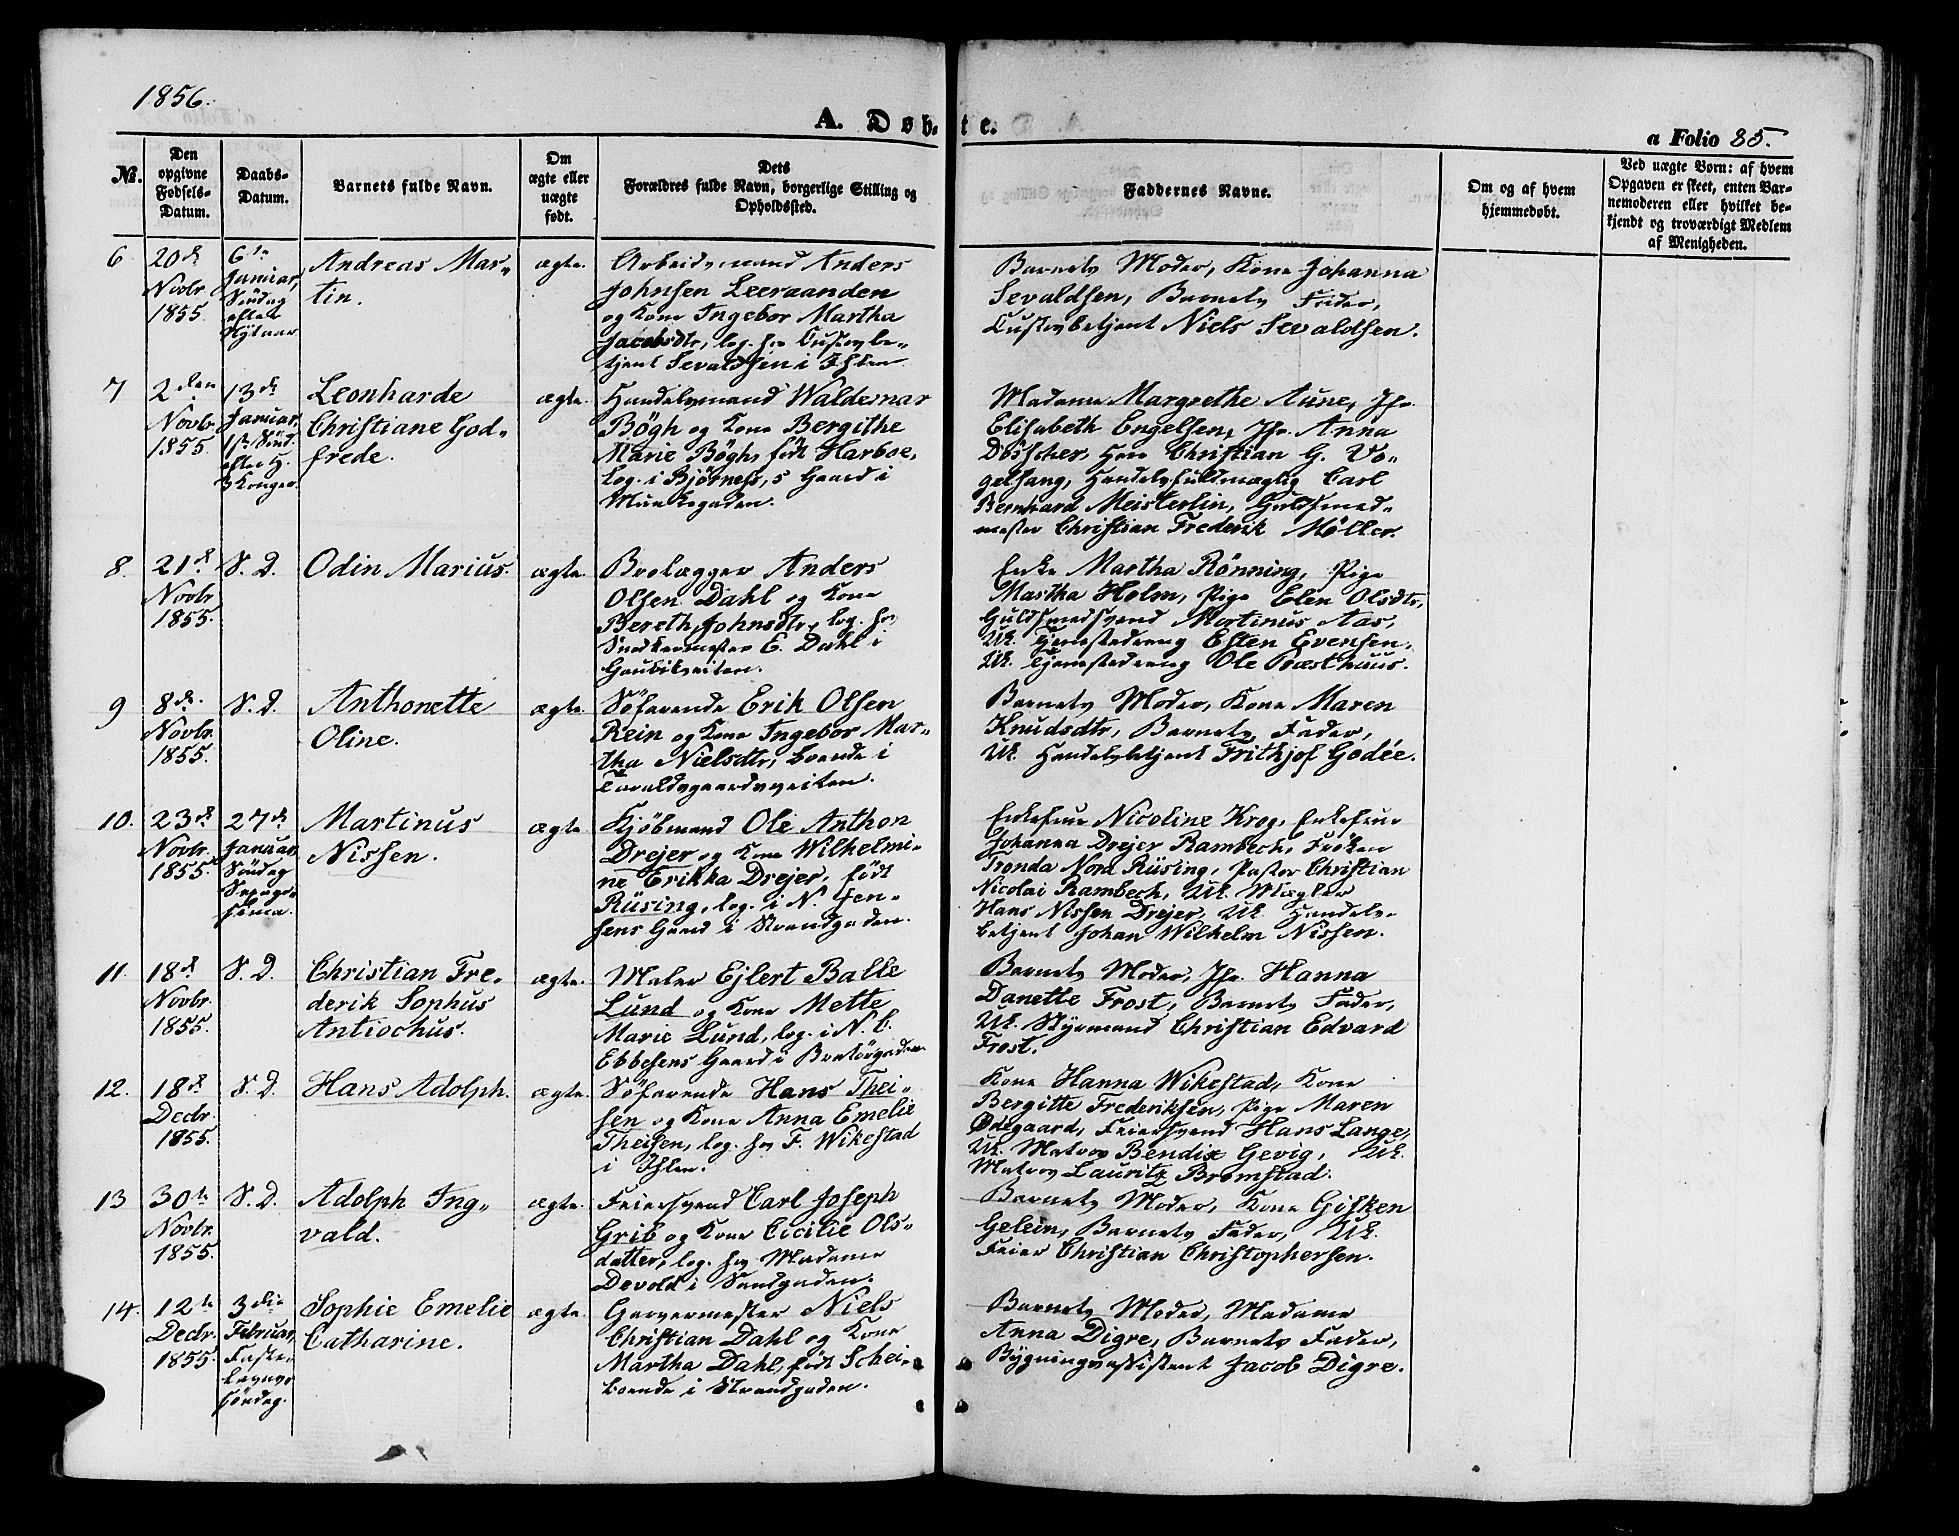 1856.
A. Døbte.
a Folio 85.
No.
Den opgivne Fødsels-Datum.
Daabs-Datum.
Barnets fulde Navn.
Om ægte eller uægte født.
Dets Forældres fulde Navn, borgerlige Stilling og Opholdssted.
Faddernes Navne.
Om og af hvem hjemmedøbt.
Ved uægte Børn: af hvem Opgaven er skeet, enten Barnemoderen eller hvilket bekjendt og troværdigt Medlem af Menigheden.
6.
20de Novbr 1855.
6te Januar, Søndag efter Nytaar
Andreas Mar-
tin.
ægte.
Arbeidsmand Anders
Johnsen Leeraanden
og Kone Ingebor Martha
Jacobsdtr, log. hos Custovbe-
tjent Sevaldsen i Ihlen.
Barnets Moder, Kone Johanna
Sevaldsen, Barnets Fader,
Custovbetjent Niels Sevaldsen.
7
2den Novbr 1855.
13de Januar, 1ste Sønd. efter H. 3 Konger.
Leonharde
Christiane God-
frede.
ægte.
Handelsmand Waldemar
Bögh og Kone Bergithe
Marie Bögh, født Harboe,
log. i Bjørness,s Gaard i
Munkegaden.
Madame Margrethe Aune, Jfr.
Elisabeth Engelsen, Jfr. Anna
Döscher, Herr Christian G. Vo-
gelsang, Handelsfuldmægtig Carl
Bernhard Meisterlin, Guldsmed-
mester Christian Frederik Möller.
8.
21de Novbr 1855.
S. D.
Odin Marius.
ægte.
Brolægger Anders
Olsen Dahl og Kone
Bereth Johnsdtr, log. hos
Snedkermester E. Dahl i
Gaubikveiten.
Enke Martha Rönning, Pige
Martha Holm, Pige Elen Olsdtr,
Guldsmedsvend Martinus Aas,
Uk. Tjenestedreng Esten Evensen,
Uk. Tjenestedreng Ole Præsthuus.
9
8de Novbr. 1855.
S. D.
Anthonette
Oline.
ægte.
Söfarende Erik Olsen
Rein og Kone Ingebor Mar-
tha Nielsdtr, boende i
Taraldsgaardsveiten.
Barnets Moder, Kone Maren
Knudsdtr, Barnets Fader,
Uk. Handelsbetjent Frithjof Godée.
10.
23de Novbr. 1855.
27de Januar, Söndag Septuage-
sima.
Martinus
Nissen.
ægte
Kjöbmand Ole Anthon
Drejer og Kone Wilhelmi-
ne Erikka Drejer, født
Rüsing, log. i N. Jen-
sens Gaard i Strandgaden.
Enkefrue Nicoline Krog, Enkefrue
Johanna Drejer Rambech, Fröken
Tronda Nora Rüsing, Pastor Christian
Nicolai Rambech, Uk. Mægler
Hans Nissen Drejer, Uk. Handels-
betjent Johan Wilhelm Nissen.
11.
18de Novbr. 1855.
S. D.
Christian Fre-
derik Sophus
Antiochus.
ægte.
Maler Ejlert Balle
Lund og Kone Mette
Marie Lund, log. i N. C.
Ebbesens Gaard i Bratörgaden.
Barnets Moder, Jfr. Hanna
Danette Frost, Barnets Fader,
Uk. Styrmand Christian Edvard
Frost.
12.
18de Decbr. 1855.
S. D.
Hans Adolph.
ægte.
Söfarende Hans Thei-
sen og Kone Anna Emelie
Theisen, log. hos F. Wikestad
i Ihlen.
Kone Hanna Wikestad, Kone
Bergitte Frederiksen, Pige Maren
Ødegaard, Feiersvend Hans Lange,
Uk. Matros Bendix Gevig, Uk.
Matros Lauritz Bromstad.
13
30te Novbr. 1855.
S. D.
Adolph Ing-
vald.
ægte.
Feiersvend Carl Joseph
Grib og Kone Cicilie Ols-
datter, log. hos Madame
Devold i Sandgaden.
Barnets Moder, Kone Gisken
Gelein, Barnets Fader, Uk.
Feier Christian Christophersen.
14.
12te Decbr. 1855.
3die Februar, Faste-
lavns-
söndag.
Sophie Emelie
Catharine.
ægte.
Garvermester Niels
Christian Dahl og Kone
Martha Dahl, født Schei,
boende i Strandgaden.
Barnets Moder, Madame
Anna Digre, Barnets Fader,
Bygningsassistent Jacob Digre.